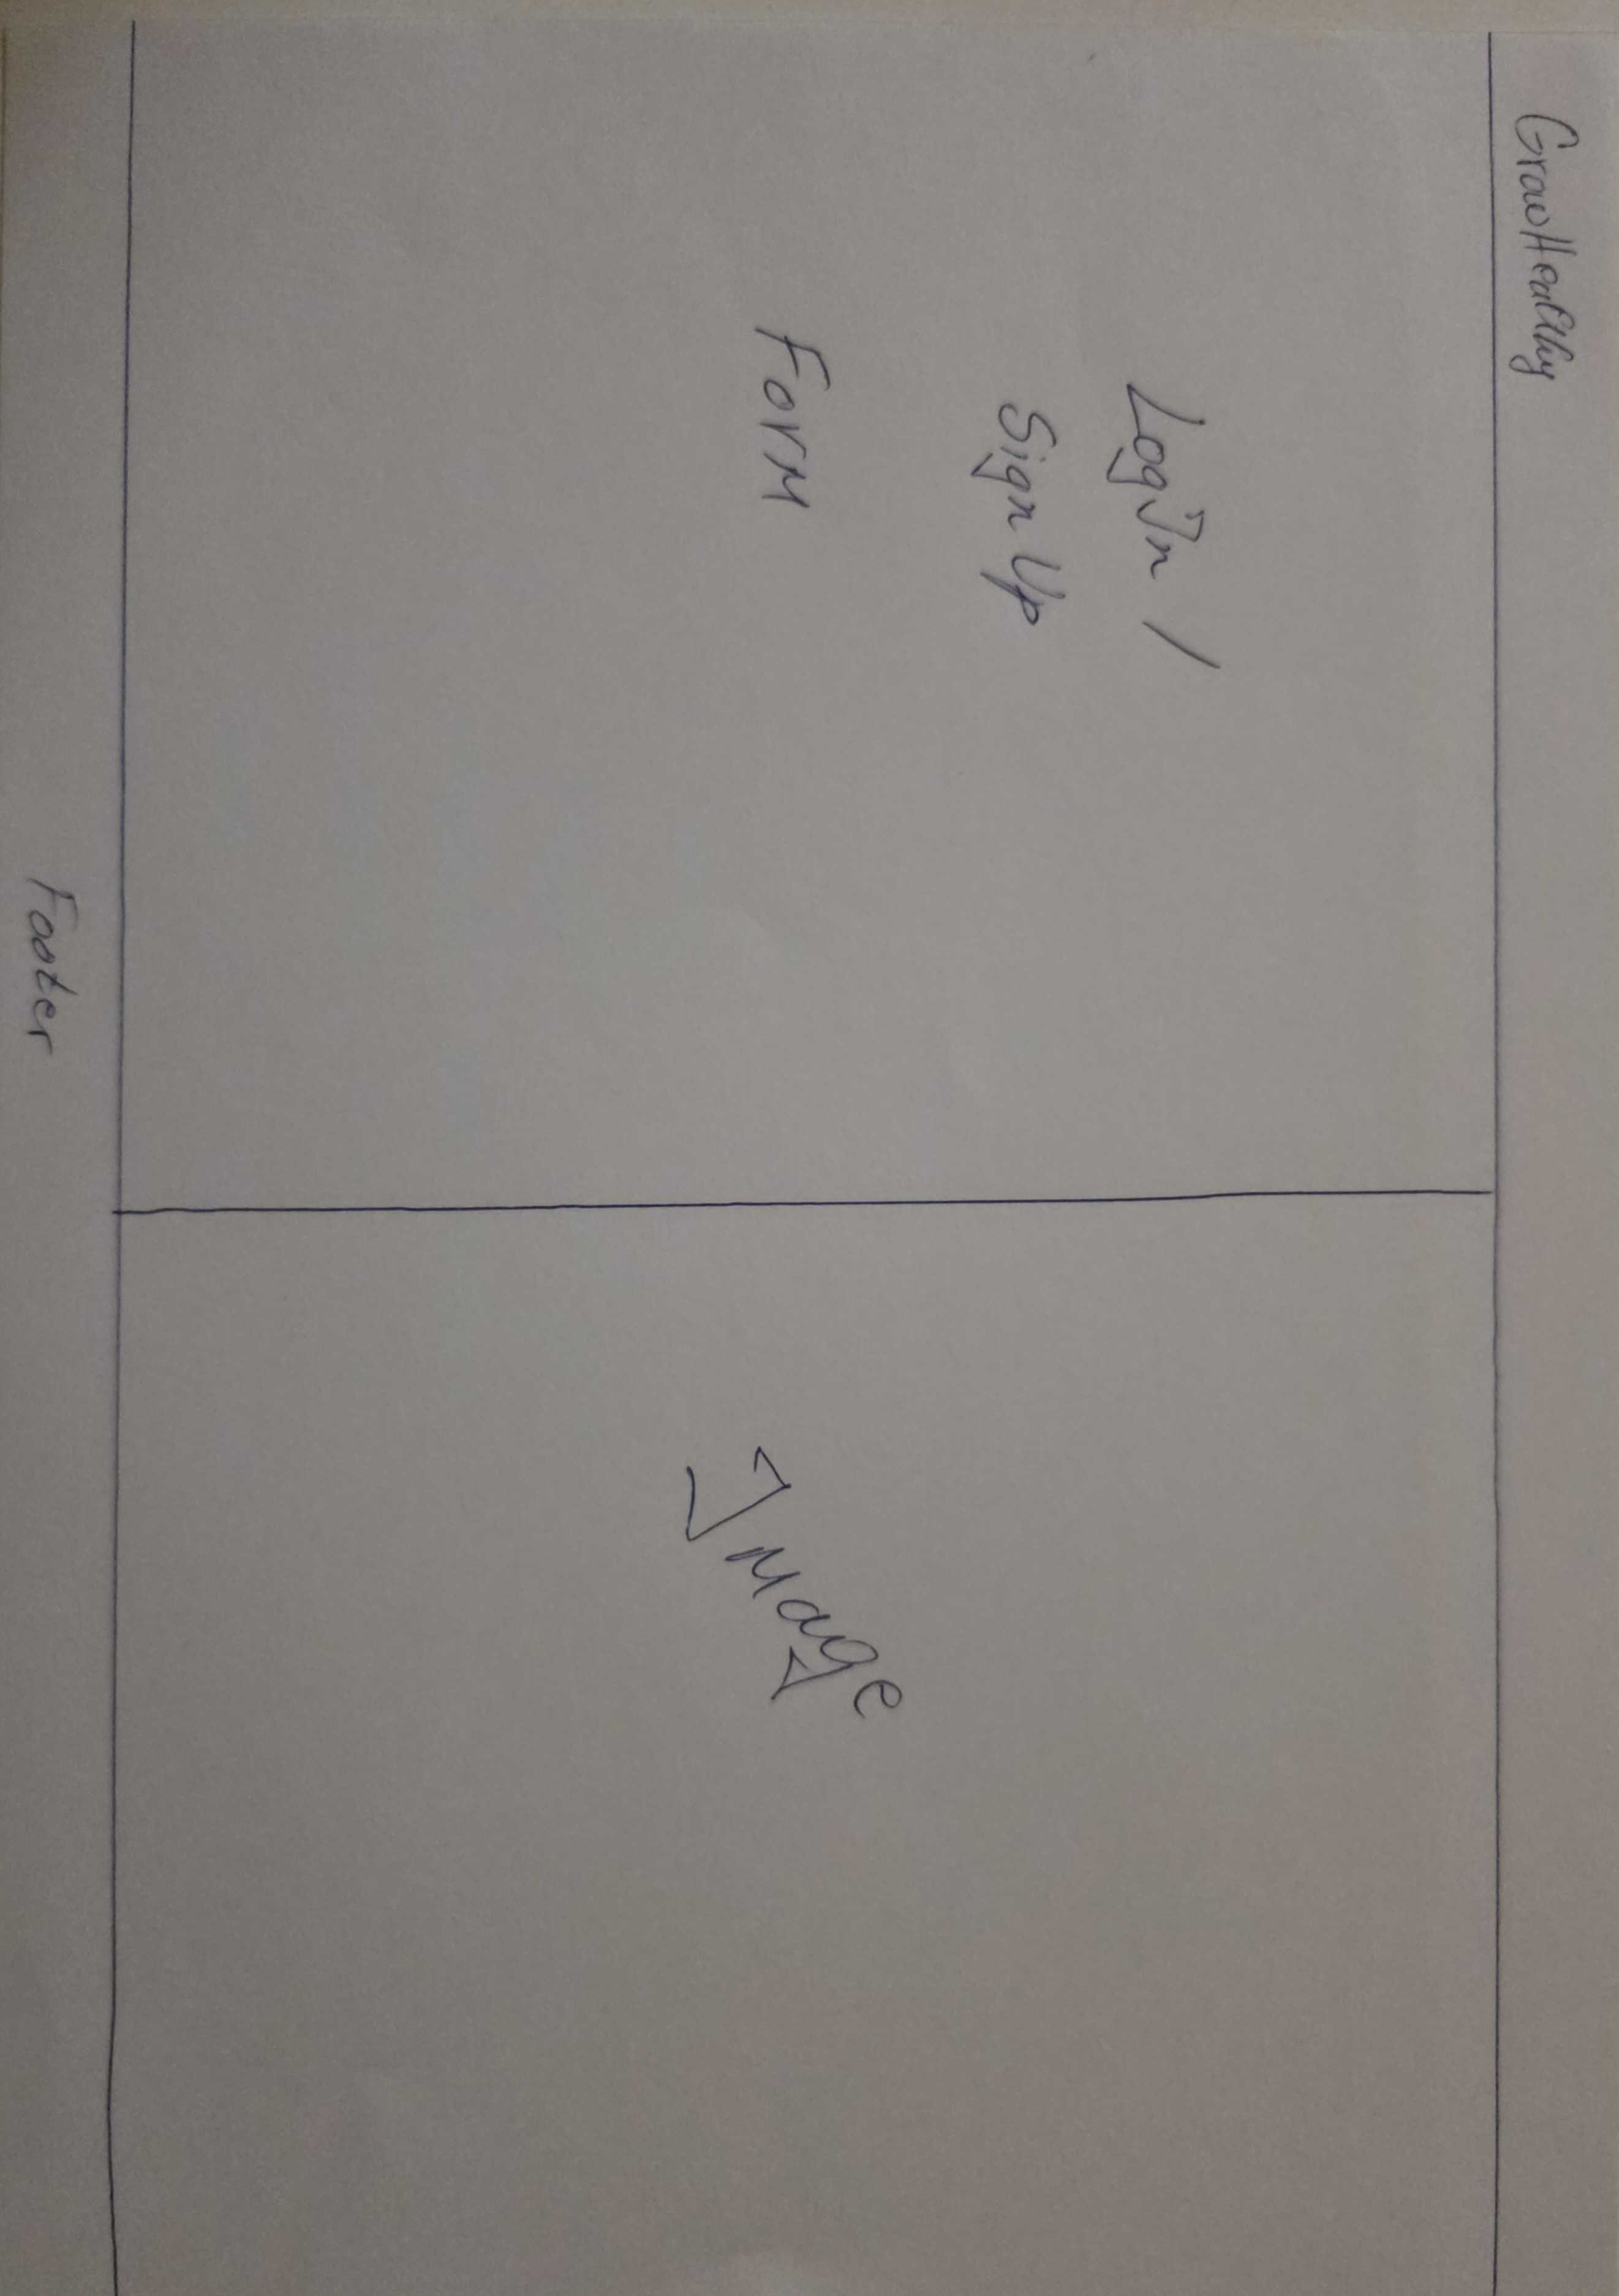 GrowHealthy
LogIn /
Sign Up
Form
Image
Footer